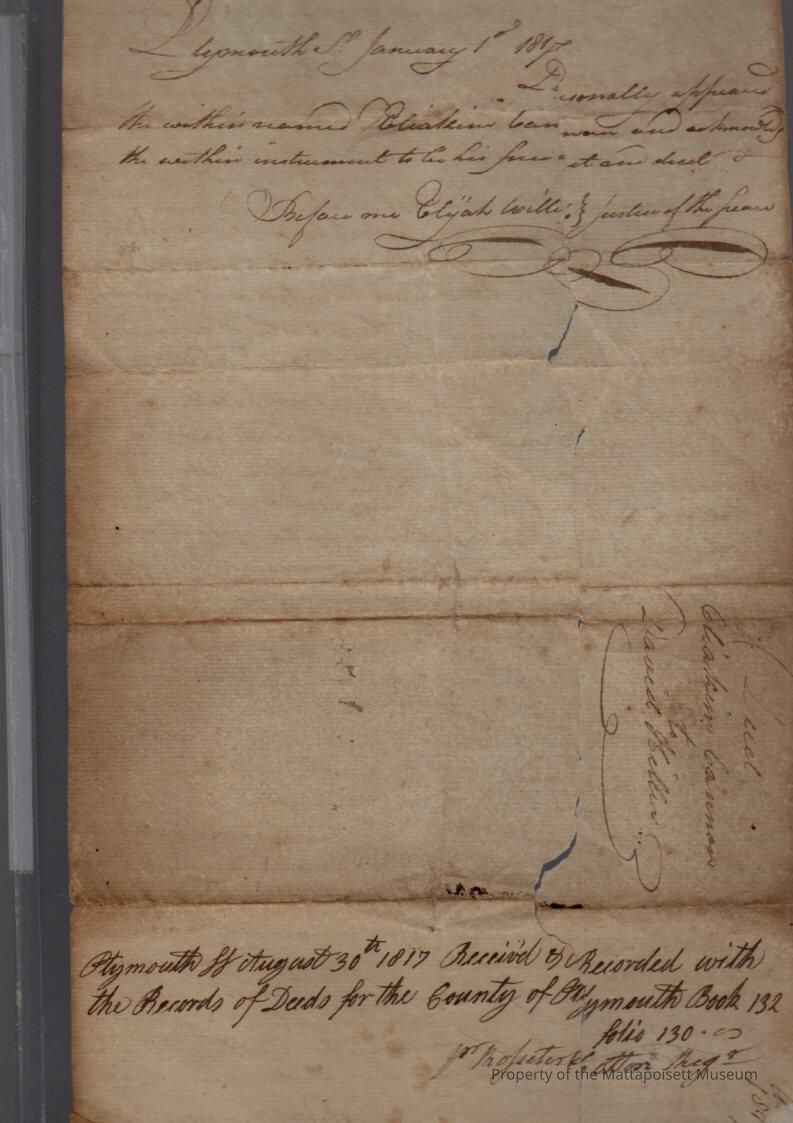 Plymouth Ss. January 1st 1817
Personally appeared
the within named Eliakim Cannon and acknowledg
the within instrument to be his free act and deed
Before me Elijah Willis } justice of the peace
A Deed
Eliakim Cannon
to
David Hiller
Plymouth Ss August 30th 1817 Receiv'd & Recorded with
the Records of Deeds for the County of Plymouth Book 132
folio 130.
pr Rosseter Cotton Regr
Property of the Mattapoisett Museum